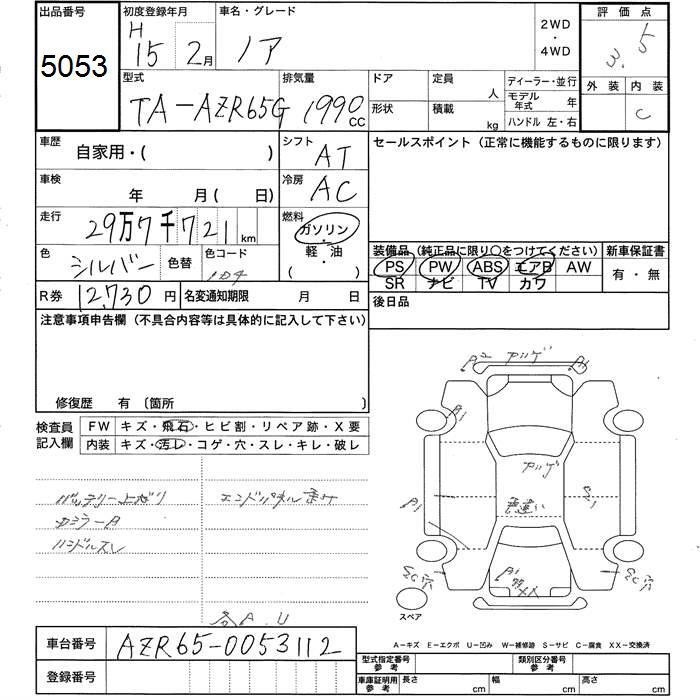 出品番号 初度登録年月 車名・グレード 評価点
5053 H 15 2月 ノア 2WD・4WD 3.5
型式 排気量 ドア 定員 人 ディーラー・並行 外装 内装
TA-AZR65G 1990 CC 形状 積載 kg モデル年式 年 C
ハンドル 左・右
車歴 自家用・( ) シフト AT セールスポイント(正常に機能するものに限ります)
車検 年 月( 日) 冷房 AC
走行 29万7千721km 燃料 ガソリン・軽油
( )
色 シルバー 色替 色コード 装備品(純正品に限り〇をつけてください) 新車保証書
PS PW ABS エアB AW 有・無
SR ナビ TV カワ
R券 12,730円 名変通知期限 月 日 後日品
注意事項申告欄(不具合内容等は具体的に記入して下さい)
修復歴 有 〔箇所 〕
検査員記入欄 FW キズ・飛石・ヒビ割・リペア跡・X要
内装 キズ・汚レ・コゲ・穴・スレ・キレ・破レ
バッテリー上がり
ハンドルスレ
A2 A1
A1
A1
色違い
A1
スペア
A.U
車台番号 AZR65-0053112
登録番号
A-キズ E-エクボ U-凹み W-補修跡 S-サビ C-腐食 XX-交換済
型式指定番号参考 類別区分番号参考
車庫証明用参考 長さ cm 幅 cm 高さ cm